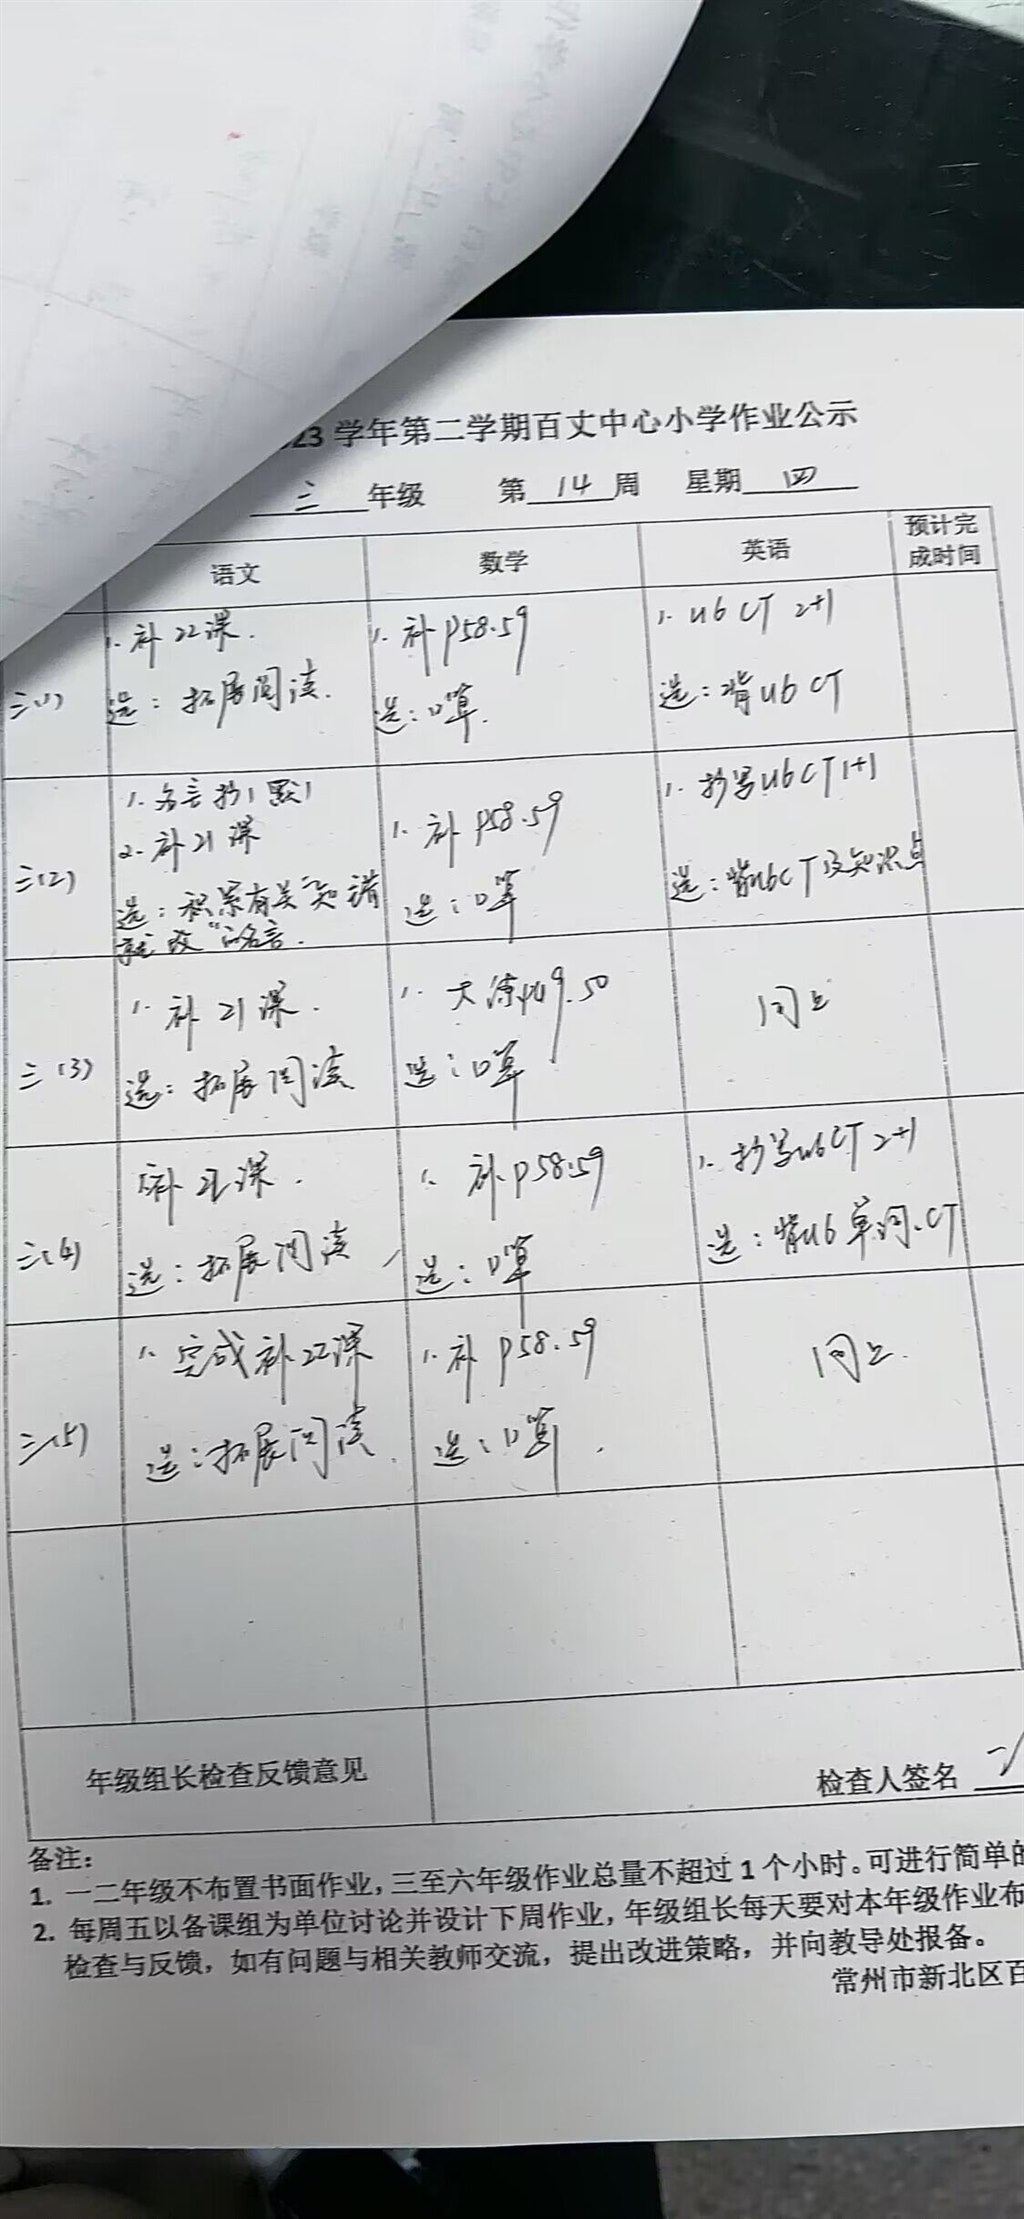 23 学年第二学期百丈中心小学作业公示
三 年级 第 14 周 星期 四
语文 数学 英语 预计完成时间
三(1)
1. 补22课.
选：拓展阅读.
1. 补P58.59
选：口算.
1. U6 CT 2+1
选：背U6 CT
三(2)
1. 名言抄1默1
2. 补21课
选：积累有关"知错
就改"的名言.
1. 补P58.59
选：口算
1. 抄写U6CT 1+1
选：背U6CT及知识点
三(3)
1. 补21课.
选：拓展阅读
1. 大练P49.50
选：口算
同上
三(4)
1补21课.
选：拓展阅读
1. 补P58.59
选：口算
1. 抄写U6CT 2+1
选：背U6单词、CT
三(5)
1. 完成补22课
选：拓展阅读.
1. 补P58.59
选：口算.
同上.
年级组长检查反馈意见
检查人签名
备注：
1. 一二年级不布置书面作业，三至六年级作业总量不超过 1 个小时。可进行简单的
2. 每周五以备课组为单位讨论并设计下周作业，年级组长每天要对本年级作业布
检查与反馈，如有问题与相关教师交流，提出改进策略，并向教导处报备。
常州市新北区百